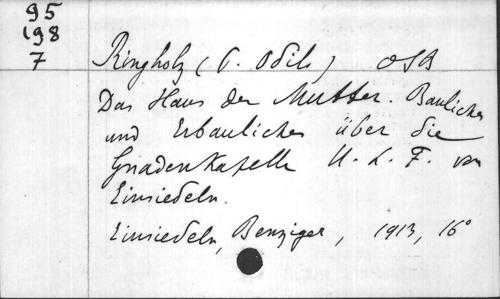 95
198
7
Ringholz (P. Odilo) OSB
Das Haus der Mutter. Bauliches
und Erbauliches über die
Gnadenkapelle U. L. F. von
Einsiedeln.
Einsiedeln, Benziger, 1913, 16°